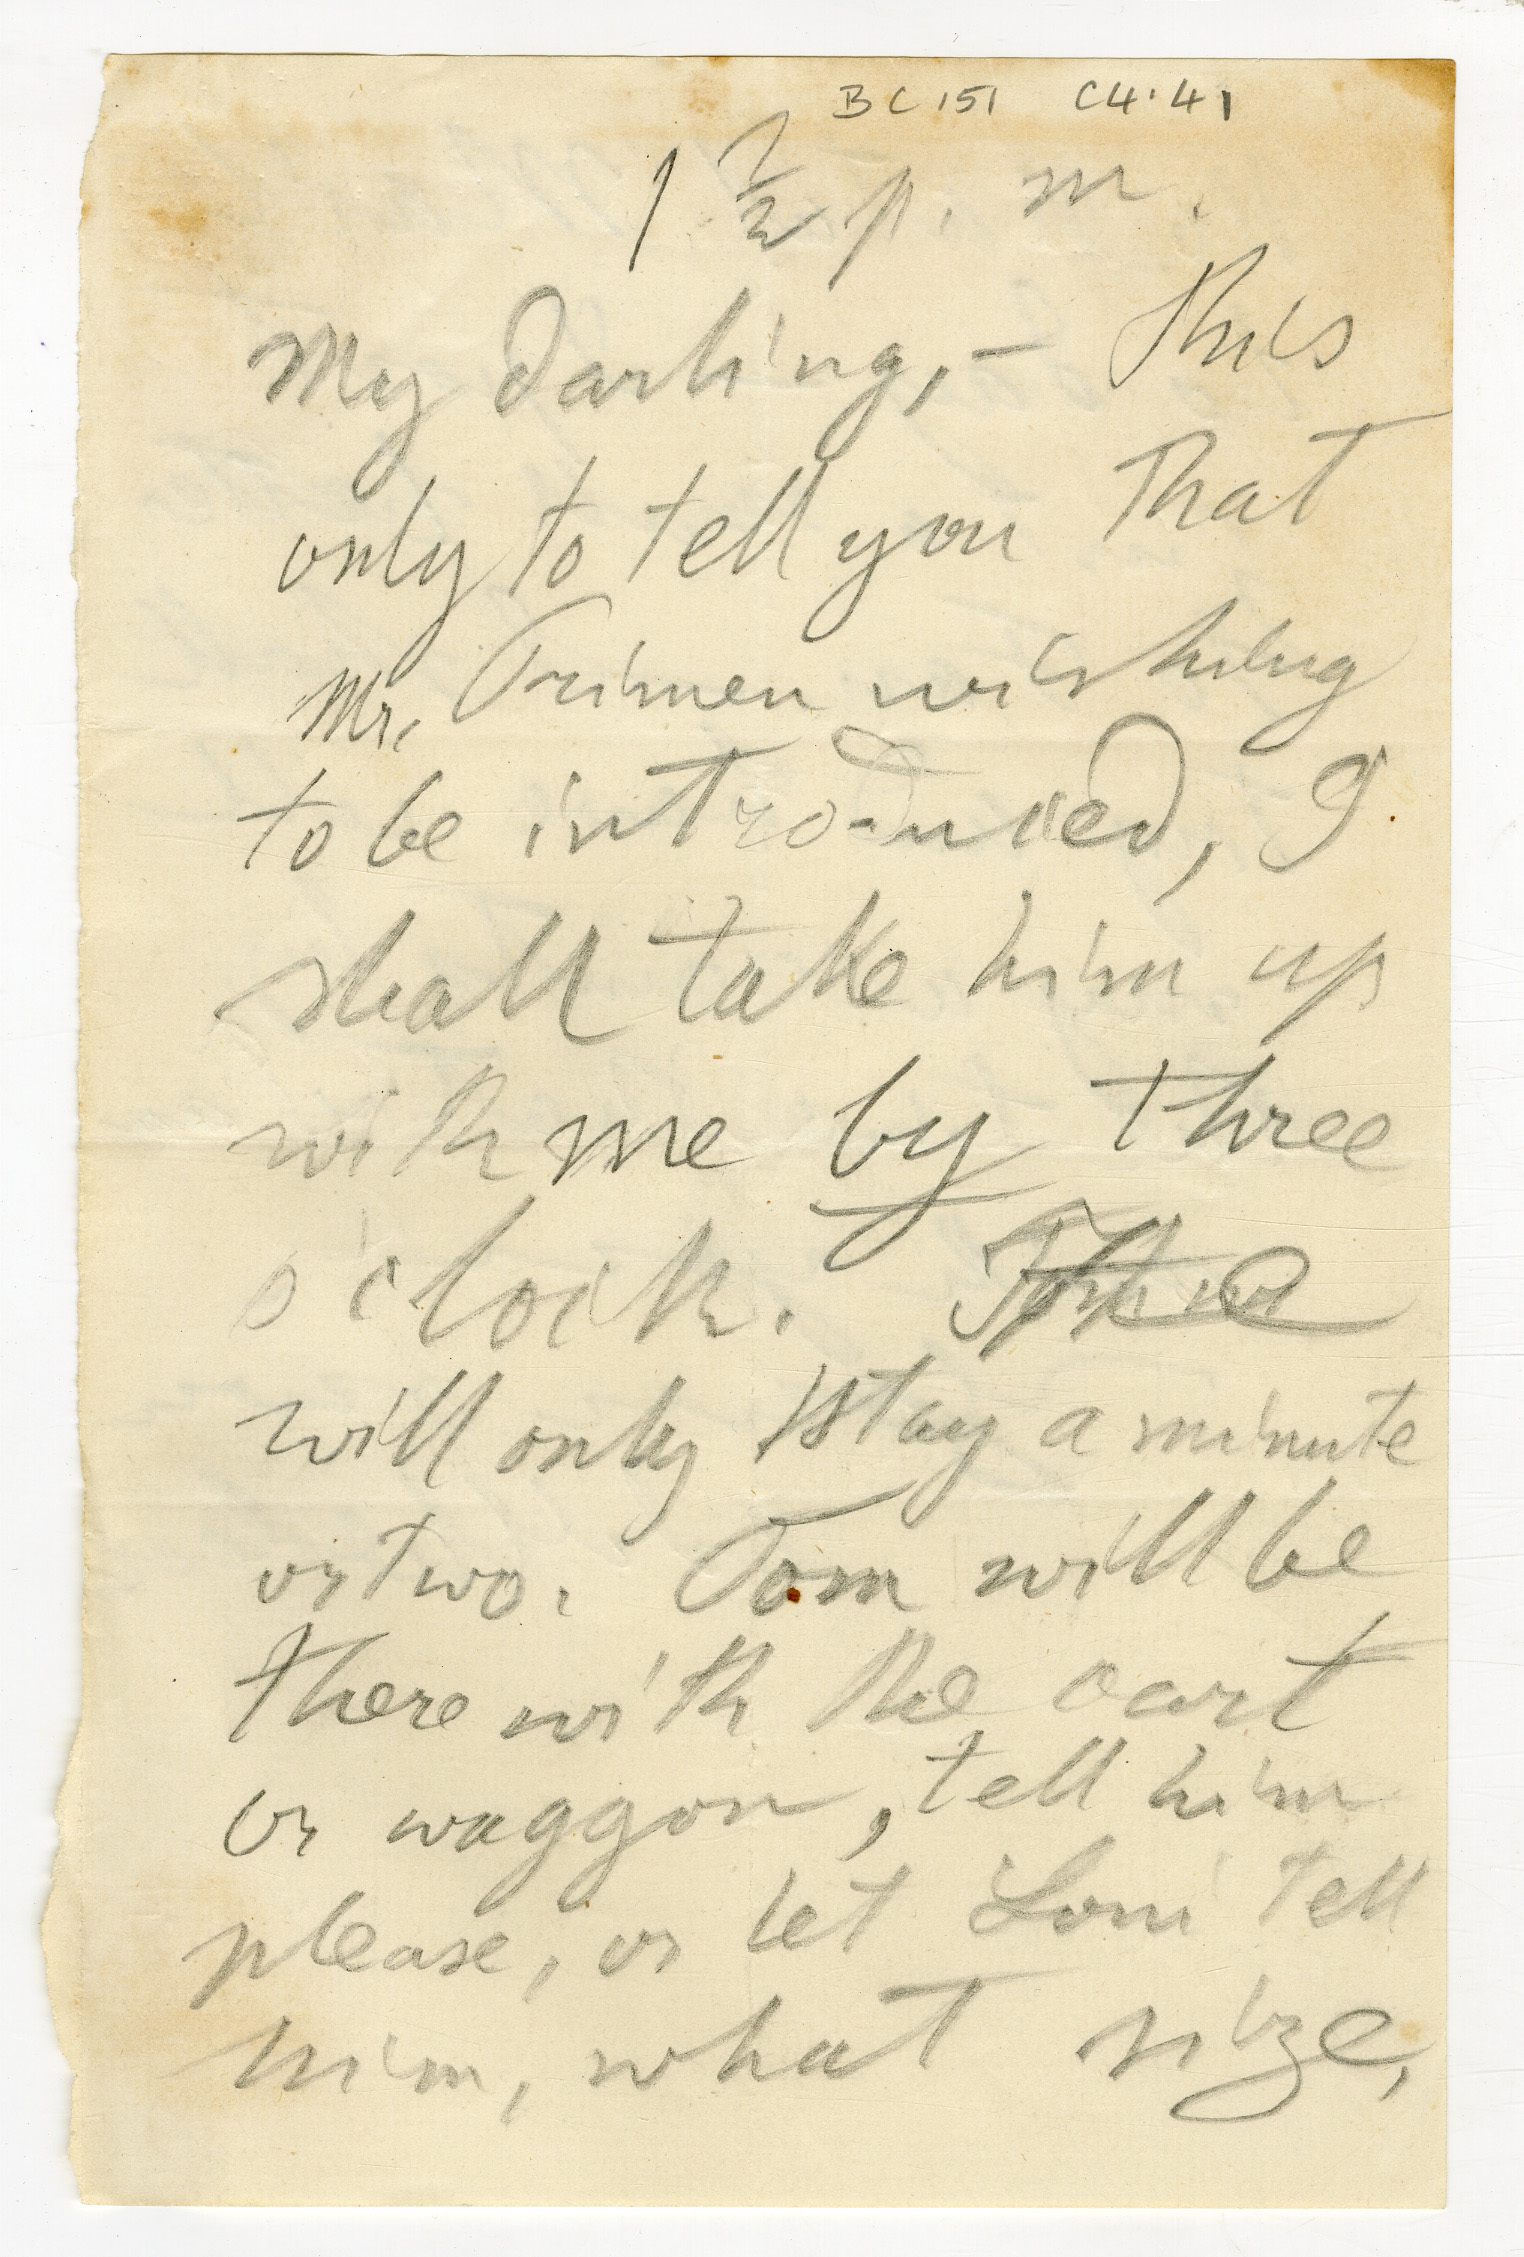 BC 151 C4.41
1 1/2 p. m.
My darling, — This
only to tell you that
Mr. Trimen wishing
to be introduced, I
shall take him up
with me by three
o'clock.
will only stay a minute
or two. Tom will be
there with the cart
or waggon, tell him
please, or let Loui tell
him, what size,